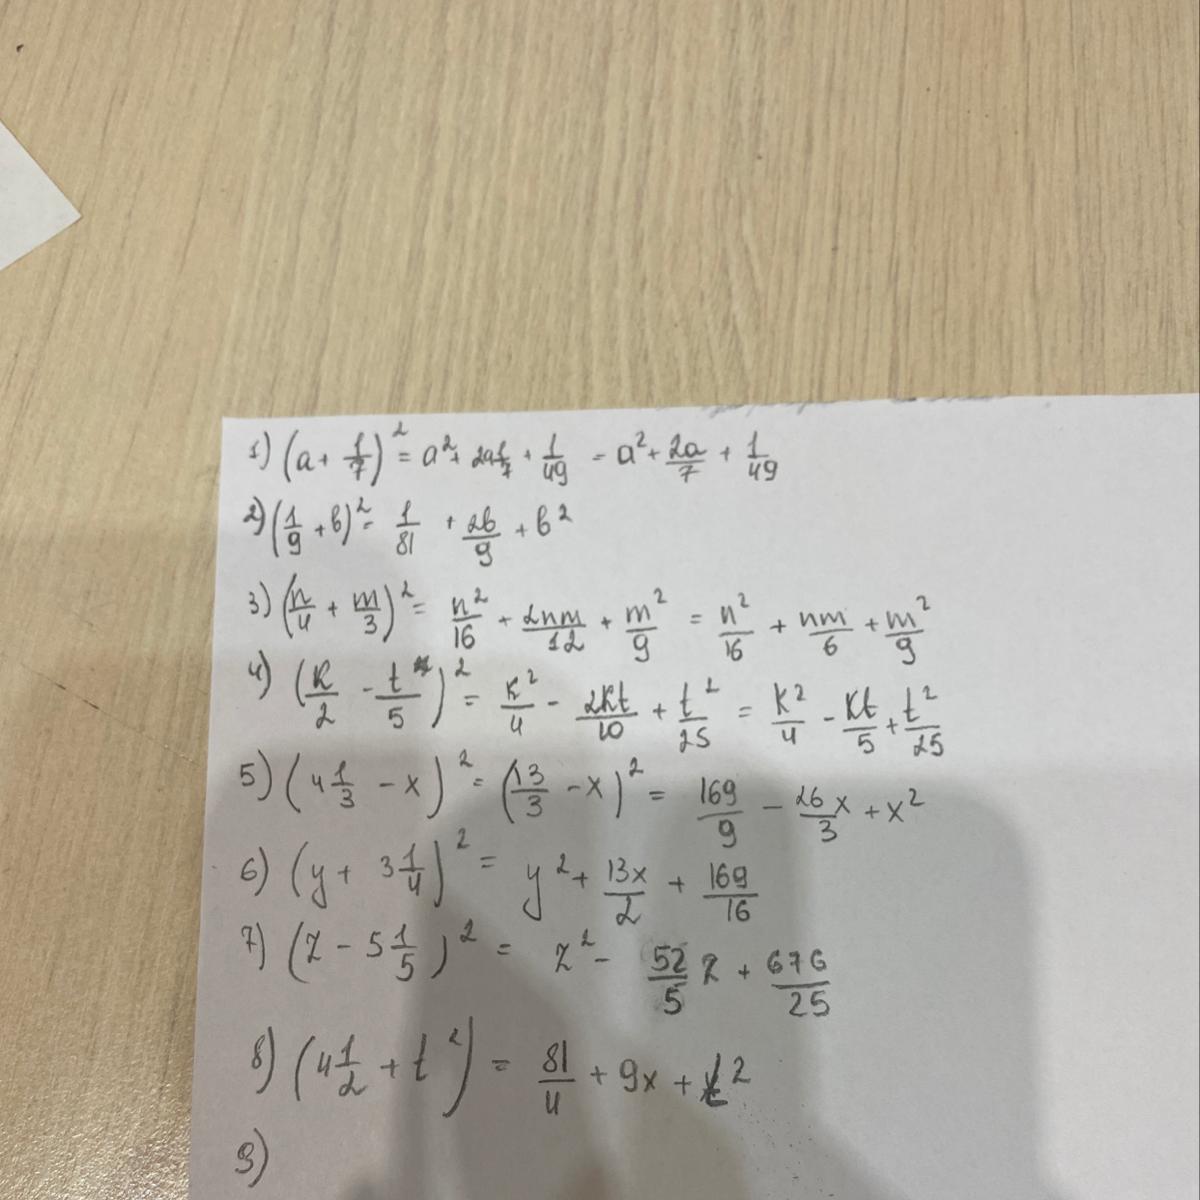 1) (a + 1/7)² = a² + 2a1/7 + 1/49 = a² + 2a/7 + 1/49
2) (1/9 + b)² = 1/81 + 2b/9 + b²
3) (n/4 + m/3)² = n²/16 + 2nm/12 + m²/9 = n²/16 + nm/6 + m²/9
4) (k/2 - t/5)² = k²/4 - 2kt/10 + t²/25 = k²/4 - kt/5 + t²/25
5) (4 1/3 - x)² = (13/3 - x)² = 169/9 - 26/3 x + x²
6) (y + 3 1/4)² = y² + 13x/2 + 169/16
7) (z - 5 1/5)² = z² - 52/5 z + 676/25
8) (4 1/2 + t²) = 81/4 + 9x + t²
9)